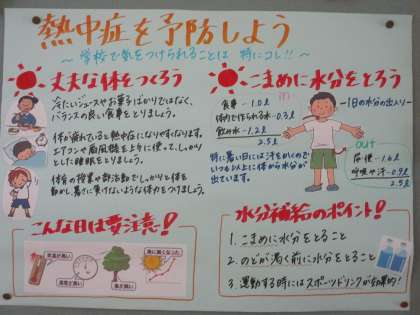 熱中症を予防しよう
～学校で気をつけられることは 特にコレ!!～
丈夫な体をつくろう
冷たいジュースやお菓子ばかりではなく、
バランスの良い食事をとりましょう。
体が疲れていると熱中症になりやすくなります。
エアコンや扇風機を上手に使って、しっかり
とした睡眠をとりましょう。
体育の授業や部活動でしっかりと体を
動かし、暑さに負けないような体をつくりましょう。
こまめに水分をとろう
食事 — 1.0ℓ
体内で作られる水 — 0.3ℓ
飲み水 — 1.2ℓ
2.5ℓ
特に暑い日には汗をかくので
いつも以上に体から水分が
出ていきます。
1日の水分の出入り
out
尿・便 — 1.6ℓ
呼吸や汗 — 0.9ℓ
2.5ℓ
こんな日は要注意!
気温が高い
湿度が高い
風が弱い
急に暑くなった
水分補給のポイント!
1. こまめに水分をとること
2. のどが渇く前に水分をとること
3. 運動する時にはスポーツドリンクが効果的!